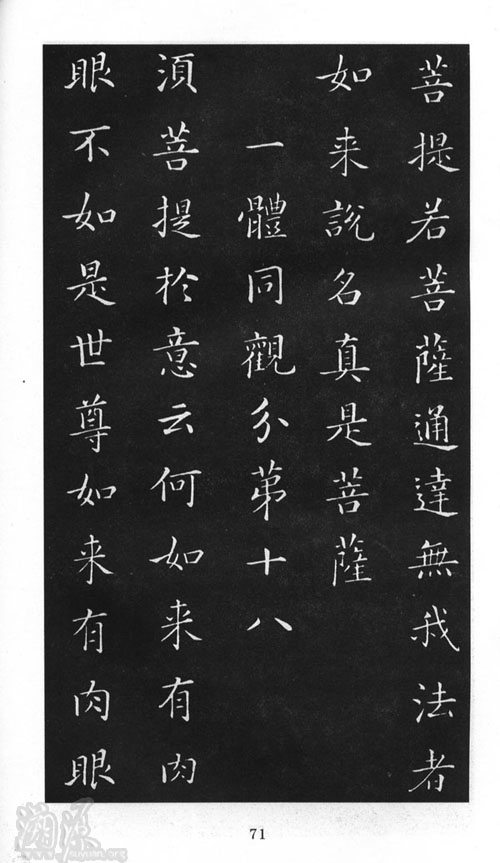 菩提若菩薩通達無我法者
如来説名真是菩薩
一體同觀分第十八
須菩提於意云何如来有肉
眼不如是世尊如来有肉眼
71